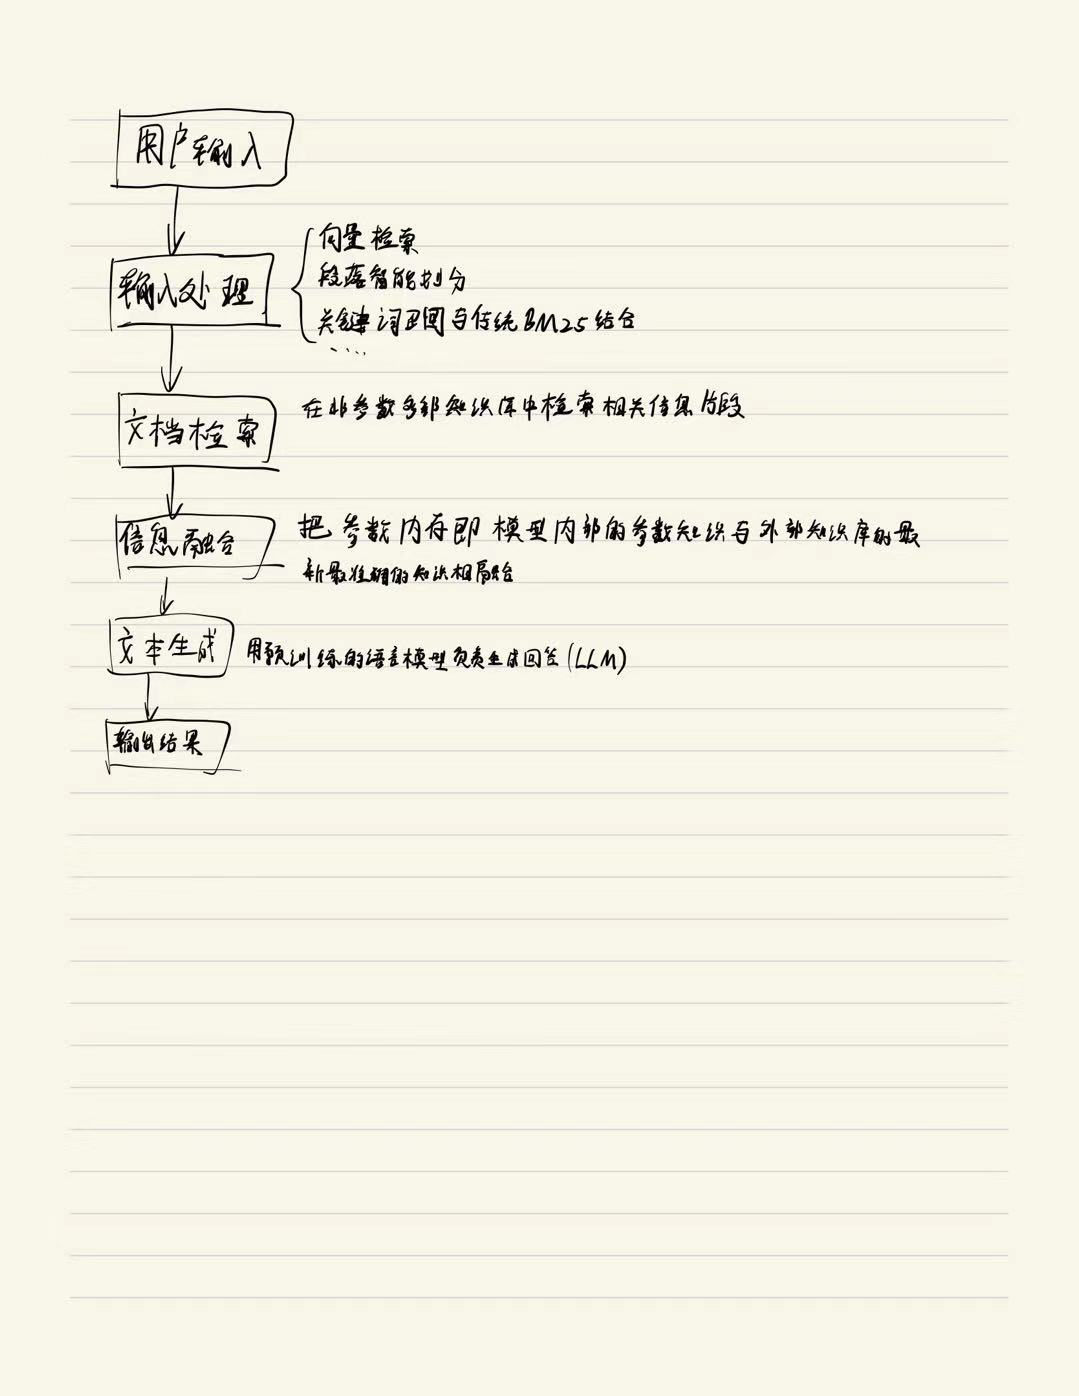 用户输入
输入处理
向量检索
段落智能划分
关键词召回与传统BM25结合
....
文档检索
在非参数外部知识库中检索相关信息片段
信息融合
把参数内存即模型内部的参数知识与外部知识库的最
新最准确的知识相融合
文本生成
用预训练的语言模型负责生成回答(LLM)
输出结果